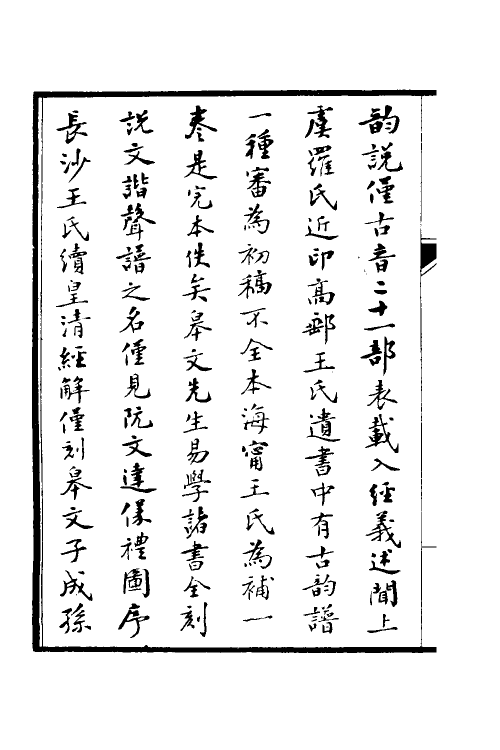 韵說僅古音二十一部表載入經義述聞上
虞羅氏近印高郵王氏遺書中有古韵譜
一種審為初稿不全本海甯王氏為補一
卷是完本佚矣皋文先生易學諸書全刻
說文諧聲譜之名僅見阮文達儀禮圖序
長沙王氏續皇清經解僅刻皋文子成孫